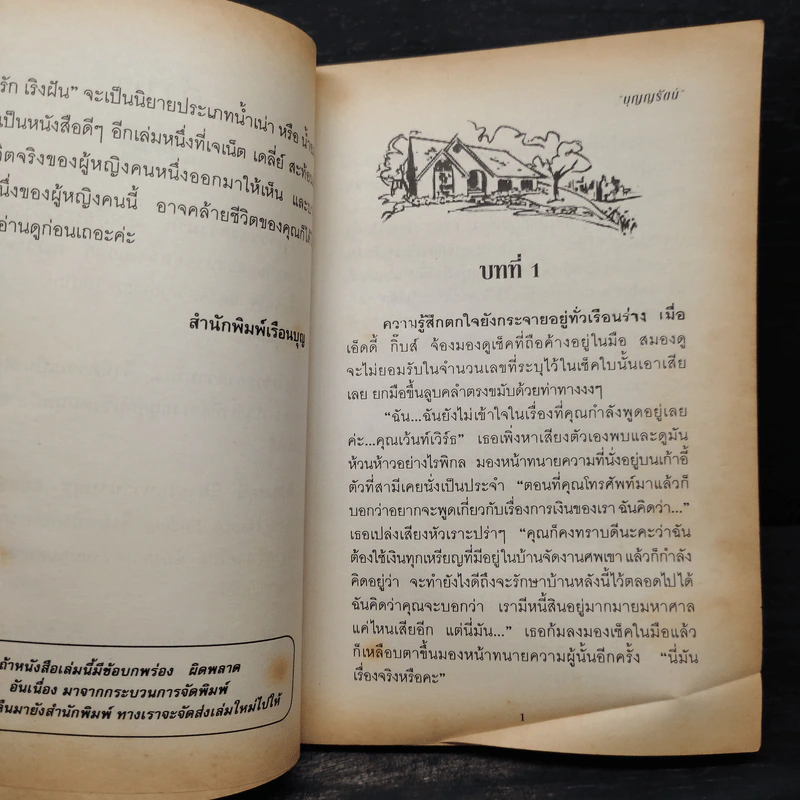 รัก เริงฝัน” จะเป็นนิยายประเภทน้ำเน่า หรือ
เป็นหนังสือดีๆ อีกเล่มหนึ่งที่เจเน็ต เดลี่ย์
จริงของผู้หญิงคนหนึ่งออกมาให้เห็น
ของผู้หญิงคนนี้ อาจคล้ายชีวิตของคุณก็
อ่านดูก่อนเถอะค่ะ
สำนักพิมพ์เรือนบุญ
ถ้าหนังสือเล่มนี้มีข้อบกพร่อง ผิดพลาด
อันเนื่อง มาจากกระบวนการจัดพิมพ์
คืนมายังสำนักพิมพ์ ทางเราจะจัดส่งเล่มใหม่ไปให้
"บุญญรัตน์"
บทที่ 1
ความรู้สึกตกใจยังกระจายอยู่ทั่วเรือนร่าง เมื่อ
เอ็ดดี้ กิ๊บส์ จ้องมองดูเช็คที่ถือค้างอยู่ในมือ สมองดู
จะไม่ยอมรับในจำนวนเลขที่ระบุไว้ในเช็คใบนั้นเอาเสีย
เลย ยกมือขึ้นลูบคลำตรงขมับด้วยท่าทางงงๆ
“ฉัน...ฉันยังไม่เข้าใจในเรื่องที่คุณกำลังพูดอยู่เลย
ค่ะ...คุณเว้นท์เวิร์ธ” เธอเพิ่งหาเสียงตัวเองพบและดูมัน
ห้วนห้าวอย่างไรพิกล มองหน้าทนายความที่นั่งอยู่บนเก้าอี้
ตัวที่สามีเคยนั่งเป็นประจำ “ตอนที่คุณโทรศัพท์มาแล้วก็
บอกว่าอยากจะพูดเกี่ยวกับเรื่องการเงินของเรา ฉันคิดว่า...”
เธอเปล่งเสียงหัวเราะปร่าๆ “คุณก็คงทราบดีนะคะว่าฉัน
ต้องใช้เงินทุกเหรียญที่มีอยู่ในบ้านจัดงานศพเขา แล้วก็กำลัง
คิดอยู่ว่า จะทำยังไงดีถึงจะรักษาบ้านหลังนี้ไว้ตลอดไปได้
ฉันคิดว่าคุณจะบอกว่า เรามีหนี้สินอยู่มากมายมหาศาล
แค่ไหนเสียอีก แต่นี่มัน...” เธอก้มลงมองเช็คในมือแล้ว
ก็เหลือบตาขึ้นมองหน้าทนายความผู้นั้นอีกครั้ง “นี่มัน
เรื่องจริงหรือคะ”
1